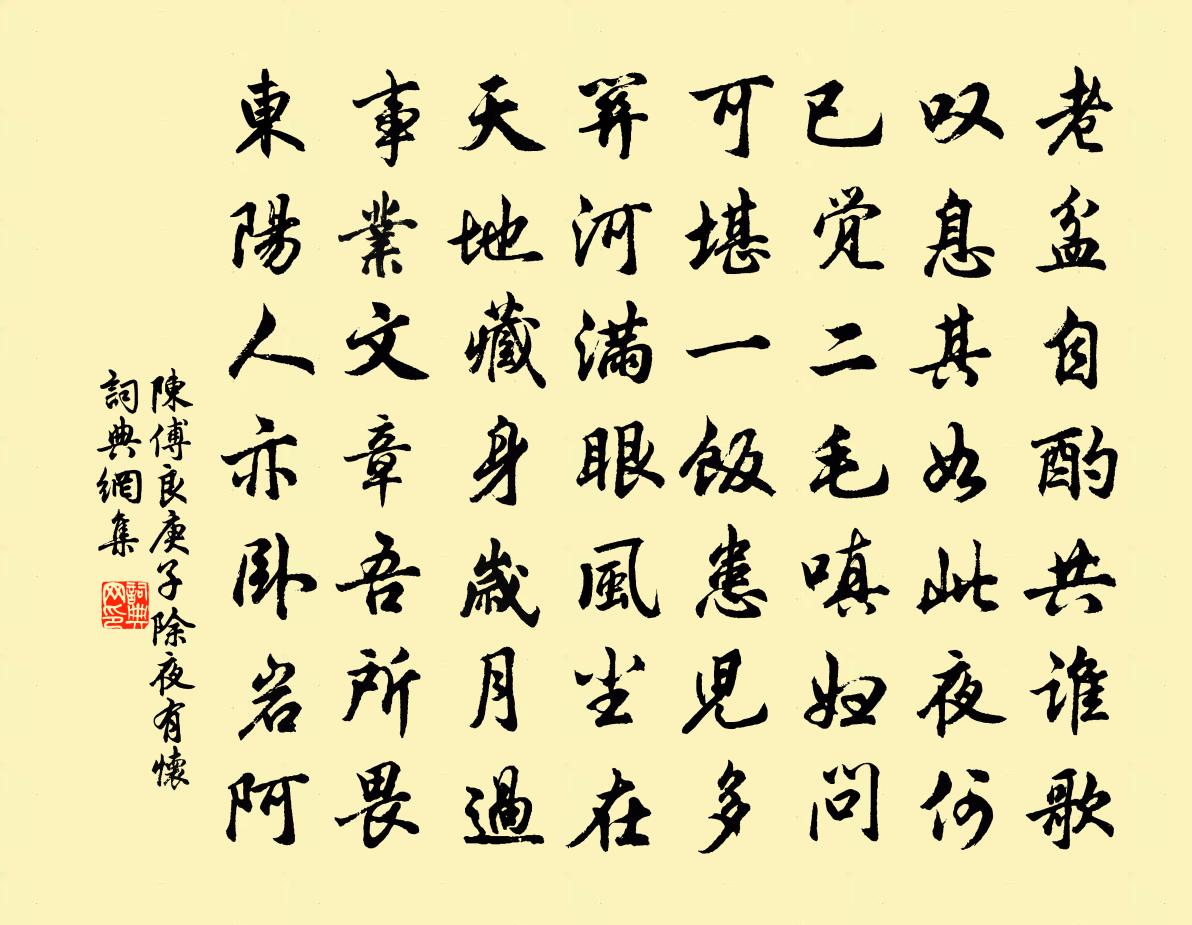 老盆自酌共谁歌
叹息其如此夜何
已觉二毛嗔妇问
可堪一饭患児多
关河满眼風尘在
天地藏身歳月過
事業文章吾所畏
東陽人亦卧岩阿
陳傅良庚子除夜有懷
詞典網集
詞典网印